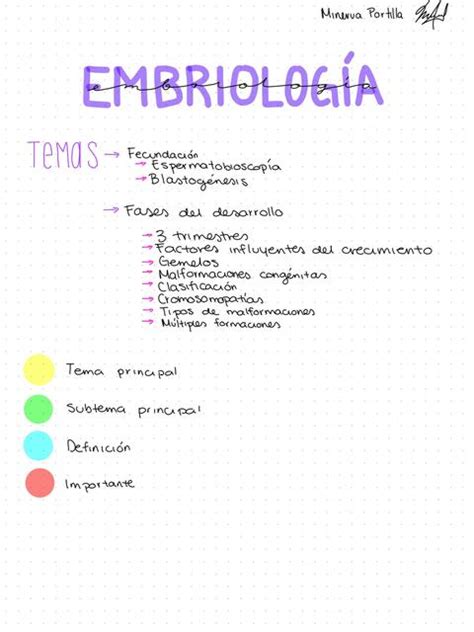 Minerva Portilla
EMBRIOLOGÍA
embriología
TEMAS → Fecundación
→ Espermatobioscopía
→ Blastogénesis
→ Fases del desarrollo
→ 3 trimestres
→ Factores influyentes del crecimiento
→ Gemelos
→ Malformaciones congénitas
→ Clasificación
→ Cromosomopatías
→ Tipos de malformaciones
→ Múltiples formaciones
Tema principal
Subtema principal
Definición
Importante